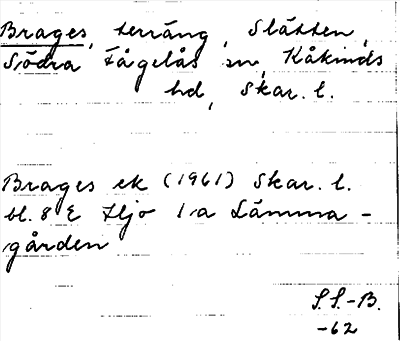 Brages, terräng, Slätten,
Södra Fågelås sn, Kåkinds
hd, Skar. l.
Brages ek (1961) Skar. l.
bl. 8 E Hjo 1a Lämma-
gården
S.S.-B.
-62